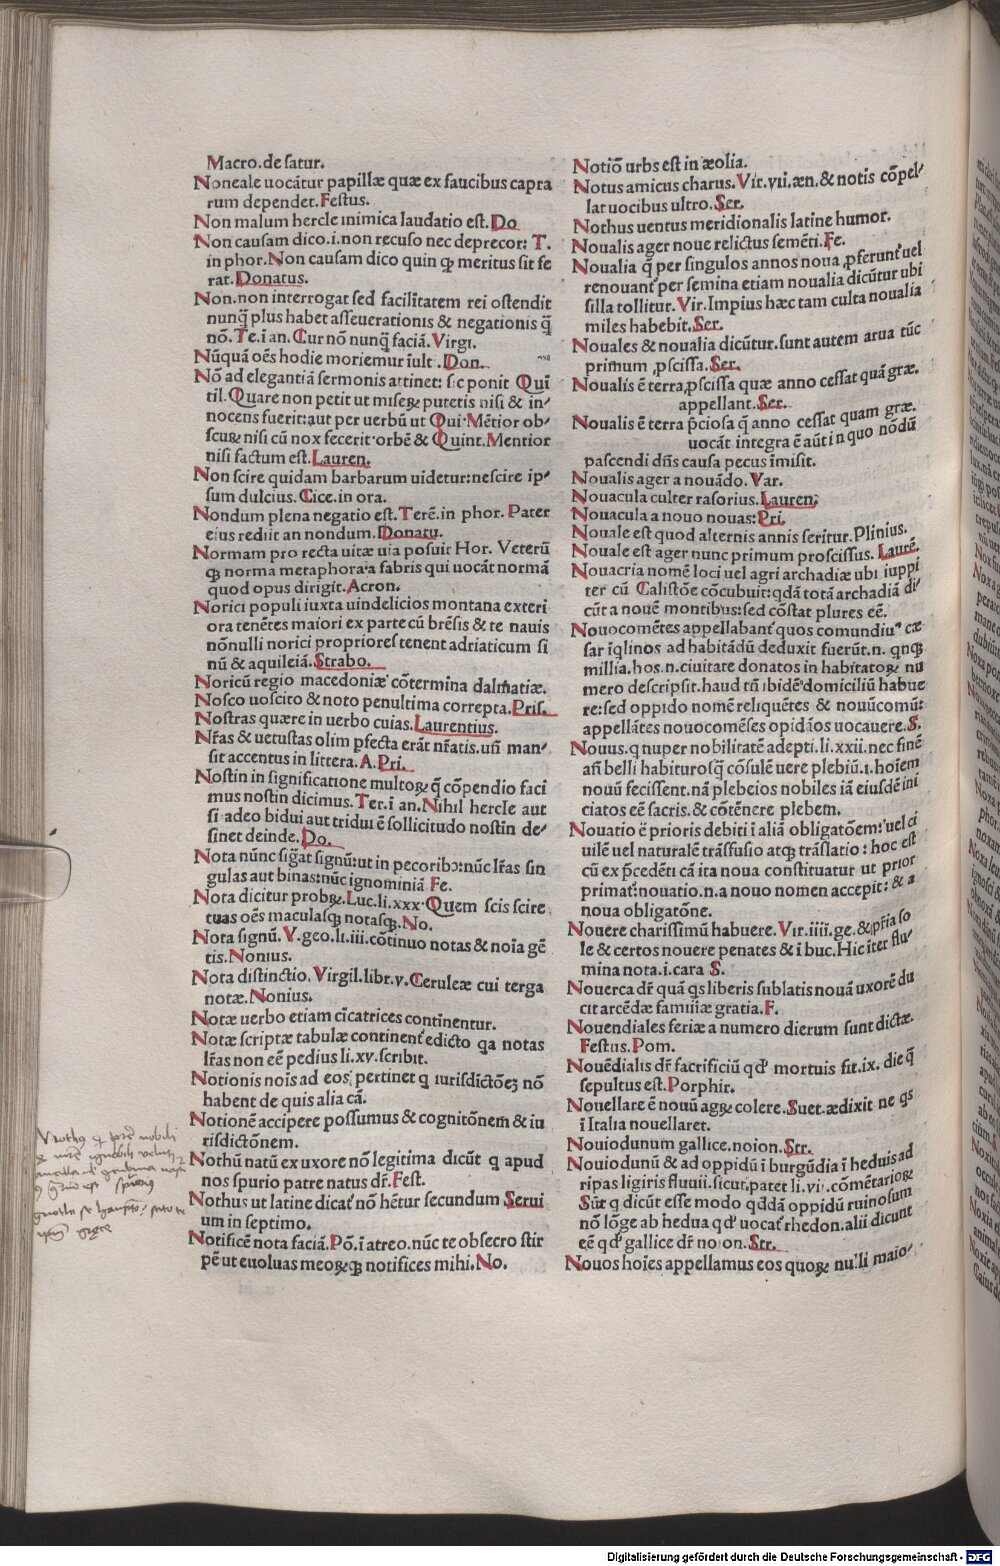 Macro.de ſatur.
Noneale uocãtur papillæ quæ ex faucibus capra
rum dependet.Feſtus.
Non malum hercle inimica laudatio eſt.Do
Non cauſam dico.i.non recuſo nec deprecor: T.
in phor.Non cauſam dico quin ꝙ meritus ſit fe
rat.Donatus.
Non.non interrogat ſed facilitatem rei oſtendit
nunq̃ plus habet aſſeuerationis & negationis q̃
nõ.Te.i an.Cur nõ nunq̃ faciã.Virgi.
Nũquã oẽs hodie moriemur iult .Don.
Nõ ad elegantiã ſermonis attinet: ſic ponit Qui
til.Quare non petit ut miſeꝝ putetis niſi & in⸗
nocens fuerit:aut per uerbũ ut Qui.Mẽtior ob⸗
ſcuꝝ niſi cũ nox fecerit orbẽ & Quint.Mentior
niſi factum eſt.Lauren.
Non ſcire quidam barbarum uidetur:neſcire ip⸗
ſum dulcius.Cice.in ora.
Nondum plena negatio eſt.Terẽ.in phor. Pater
eius rediit an nondum.Donatu.
Normam pro recta uitæ uia poſuit Hor. Veterũ
ꝙ norma metaphora a fabris qui uocãt normã
quod opus dirigit.Acron.
Norici populi iuxta uindelicios montana exteri
ora tenẽtes maiori ex parte cũ brẽſis & te nauis
nõnulli norici propriores tenent adriaticum ſi
nũ & aquileiã.Strabo.
Noricũ regio macedoniæ cõtermina dalmatiæ.
Noſco uoſcito & noto penultima correpta.Priſ.
Noſtras quære in uerbo cuias.Laurentius.
Nr̃as & uetuſtas olim pfecta erãt nr̃atis.uñ man⸗
ſit accentus in littera.A.Pri.
Noſtin in ſignificatione multoꝝ q̃ cõpendio faci
mus noſtin dicimus.Ter.i an.Nihil hercle aut
ſi adeo bidui aut tridui ẽ ſollicitudo noſtin de⸗
ſinet deinde.Do.
Nota nũnc ſigat̃ ſignũ:ut in pecoribꝰ:nũc lr̃as ſin
gulas aut binas:nũc ignominiã Fe.
Nota dicitur probꝝ.Luc.li.xxx.Quem ſcis ſcire
tuas oẽs maculaſqꝫ notaſqꝫ.No.
Nota ſignũ. V.geo.li.iii.cõtinuo notas & noĩa gẽ
tis.Nonius.
Nota diſtinctio.Virgil.libr.v.Ceruleæ cui terga
notæ.Nonius.
Notæ uerbo etiam cicatrices continentur.
Notæ ſcriptæ tabulæ continent̃ edicto qa notas
lr̃as non eẽ pedius li.xv.ſcribit.
Notionis nois ad eos pertinet q iuriſdictõeꝫ nõ
habent de quis alia cã.
Notionẽ accipere poſſumus & cognitõnem & iu
riſdictõnem.
Nothũ natũ ex uxore nõ legitima dicũt q apud
nos ſpurio patre natus dr̃.Feſt.
Nothus ut latine dicat̃ nõ hẽtur ſecundum Serui
um in ſeptimo.
Notificẽ nota faciã.Põ.i atreo.nũc te obſecro ſtir
pẽ ut euoluas meoꝝqꝫ notifices mihi.No.
Notiõ urbs eſt in æolia.
Notus amicus charus.Vir.yii.æn.& notis cõpel⸗
lat uocibus ultro.Ser.
Nothus uentus meridionalis latine humor.
Noualis ager noue relictus ſemẽti.Fe.
Noualia q̃ per ſingulos annos noua ꝓferunt̃ uel
renouant̃ per ſemina etiam noualia dicũtur ubi
ſilla tollitur.Vir.Impius hæc tam culta noualia
miles habebit.Ser.
Nouales & noualia dicũtur.ſunt autem arua tũc
primum ꝓſciſſa.Ser.
Noualis ẽ terra ꝓſciſſa quæ anno ceſſat quã græ.
appellant.Ser.
Noualis ẽ terra p̃cioſa q̃ anno ceſſat quam græ.
uocãt integra ẽ aũt in quo nõdũ
paſcendi dñs cauſa pecus ĩmiſit.
Noualis ager a nouãdo.Var.
Nouacula culter raſorius.Lauren.
Nouacula a nouo nouas:Pri.
Nouale eſt quod alternis annis ſeritur.Plinius.
Nouale eſt ager nunc primum proſciſſus. Laurẽ.
Nouacria nomẽ loci uel agri archadiæ ubi iuppi
ter cũ Caliſtõe cõcubuit:qdã totã archadiã di⸗
cũt a nouẽ montibus:ſed cõſtat plures eẽ.
Nouocomẽtes appellabant̃ quos comundiuꝰ cæ
ſar ĩqlinos ad habitãdũ deduxit fuerũt.n. qnqꝫ
millia.hos.n.ciuitate donatos in habitatoꝝ nu
mero deſcripſit.haud tñ ibidẽ domiciliũ habue
re:ſed oppido nomẽ reliquẽtes & nouũcomũt
appellãtes nouocomẽſes opidãos uocauere.S.
Nouus.q nuper nobilitatẽ adepti.li.xxii.nec finẽ
añ belli habituroſq̃ cõſulẽ uere plebiũ.i.hoĩem
nouũ feciſſent.nã plebeios nobiles iã eiuſdẽ ini
ciatos eẽ ſacris.& cõtẽnere plebem.
Nouatio ẽ prioris debiti ĩ aliã obligatõem:uel ci
uilẽ uel naturalẽ trãſfuſio atqꝫ trãſlatio : hoc eſt
cũ ex p̃cedẽti cã ita noua conſtituatur ut prior
primat̃.nouatio.n.a nouo nomen accepit: & a
noua obligatõne.
Nouere chariſſimũ habuere. Vir.iiii.ge.&p̃ria ſo
le & certos nouere penates & ĩ buc.Hic iter flu⸗
mina nota.i.cara S.
Nouerca dr̃ quã qs liberis ſublatis nouã uxorẽ du
cit arcẽdæ familiæ gratia.F.
Nouendiales feriæ a numero dierum ſunt dictæ.
Feſtus.Pom.
Nouẽdialis dr̃ ſacrificiũ qđ mortuis fit.ix. die q̃
ſepultus eſt.Porphir.
Nouellare ẽ nouũ agꝝ colere.Suet.ædixit ne qs
ĩ Italia nouellaret.
Nouiodunum gallice.noion.Str.
Nouiodunũ & ad oppidũ ĩ burgũdia ĩ heduis ad
ripas ligiris fluuii.ſicut.patet li.vi.cõmẽtarioꝝ
Sũt q dicũt eſſe modo qddã oppidũ ruinoſum
nõ lõge ab hedua qđ uocat̃ rhedon.alii dicunt
eẽ qđ gallice dr̃ noion.Str.
Nouos hoĩes appellamus eos quoꝝ nulli maio⸗
Digitalisierung gefördert durch die Deutsche Forschungsgemeinschaft - DFG